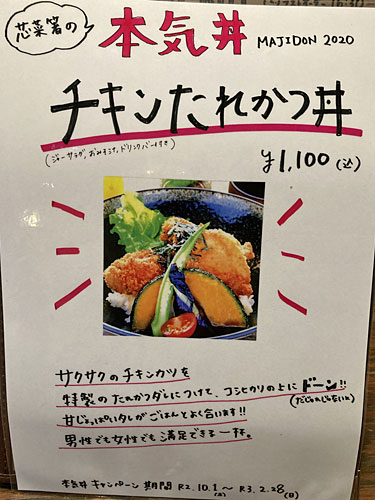 芯菜箸の
本気丼 MAJIDON 2020
チキンたれかつ丼
(ジャーサラダ,おみそ汁,ドリンクバー付き)
¥1,100(込)
サクサクのチキンカツを
特製のたれかつダレにつけて、コシヒカリの上にドーン!!
(だじゃれじゃないよ)
甘じょっぱいタレがごはんとよく合います!!
男性でも女性でも満足できる一杯。
本気丼キャンペーン 期間 R2.10.1(土)〜R3.2.28(日)